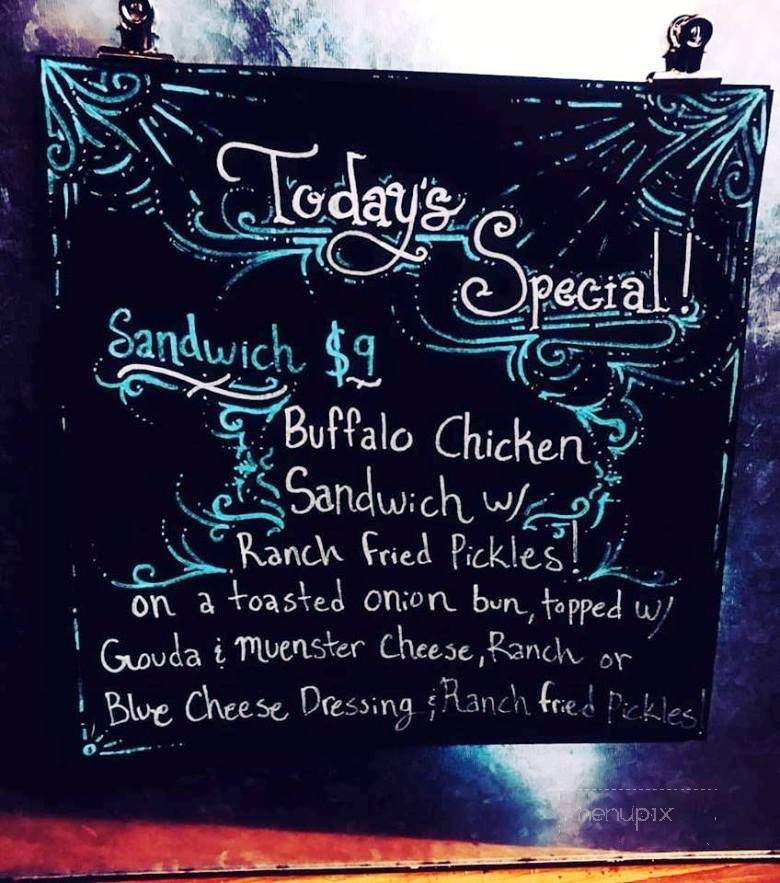 Today's
Special!
Sandwich $9
Buffalo Chicken
Sandwich w/
Ranch Fried Pickles!
on a toasted onion bun, topped w/
Gouda & Muenster Cheese, Ranch or
Blue Cheese Dressing & Ranch fried Pickles!
menupix